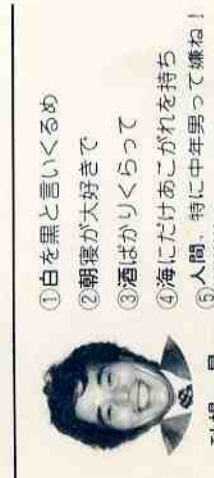 ①白を黒と言いくるめ
②朝寝が大好きで
③酒ばかりくらって
④海にだけあこがれを持ち
⑤人間、特に中年男って嫌ね!